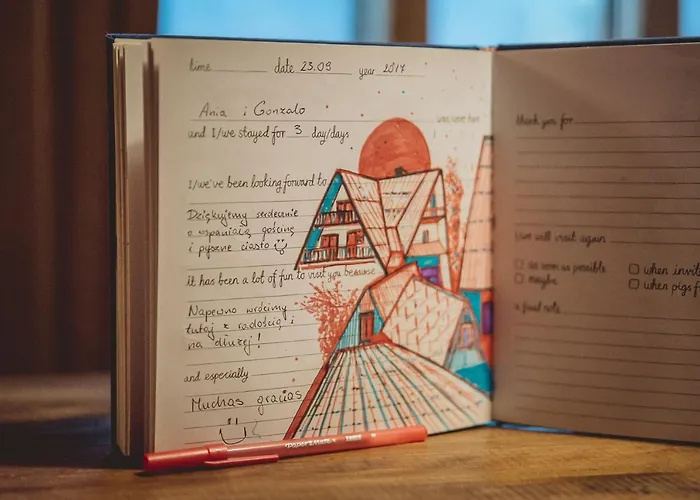 time date 23.09 year 2017
Ania i Gonzalo
and I/we stayed for 3 day/days
I/we've been looking forward to
Dziękujemy serdecznie
o wspaniałą gościnę
i pyszne ciasto
it has been a lot of fun to visit you because
Napewno wrócimy
tutaj z radością i
na dłużej!
and especially
Muchas gracias
PAPER MATE
thank you for
I/we will visit again
as soon as possible
maybe
when invit
when pigs f
a final note